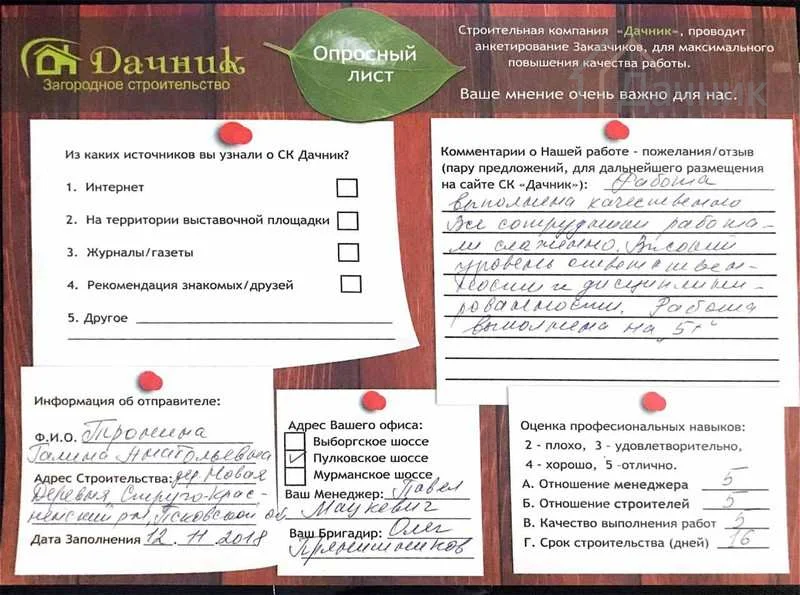 Дачник
Загородное строительство
Опросный
лист
Строительная компания «Дачник», проводит
анкетирование Заказчиков, для максимального
повышения качества работы.
Ваше мнение очень важно для нас.
Дачник
Из каких источников вы узнали о СК Дачник?
1. Интернет
2. На территории выставочной площадки
3. Журналы/газеты
4. Рекомендация знакомых/друзей
5. Другое
Комментарии о Нашей работе - пожелания/отзыв
(пару предложений, для дальнейшего размещения
на сайте СК «Дачник»): Работа
выполнена качественно
Все сотрудники работа-
ли слаженно. Высокий
уровень ответствен-
ности и дисциплини-
рованности. Работа
выполнена на 5+"
Информация об отправителе:
Ф.И.О. Тронина
Галина Анатольевна
Адрес Строительства: дер. Новая
Деревня Струго-Крас-
ненский р-н, Псковской об
Дата Заполнения 12. 11 2018
Адрес Вашего офиса:
Выборгское шоссе
Пулковское шоссе
Мурманское шоссе
Ваш Менеджер: Павел
Мацкевич
Ваш Бригадир: Олег
Оценка профессиональных навыков:
2 - плохо, 3 - удовлетворительно,
4 - хорошо, 5 -отлично.
А. Отношение менеджера 5
Б. Отношение строителей 5
В. Качество выполнения работ 5
Г. Срок строительства (дней) 16